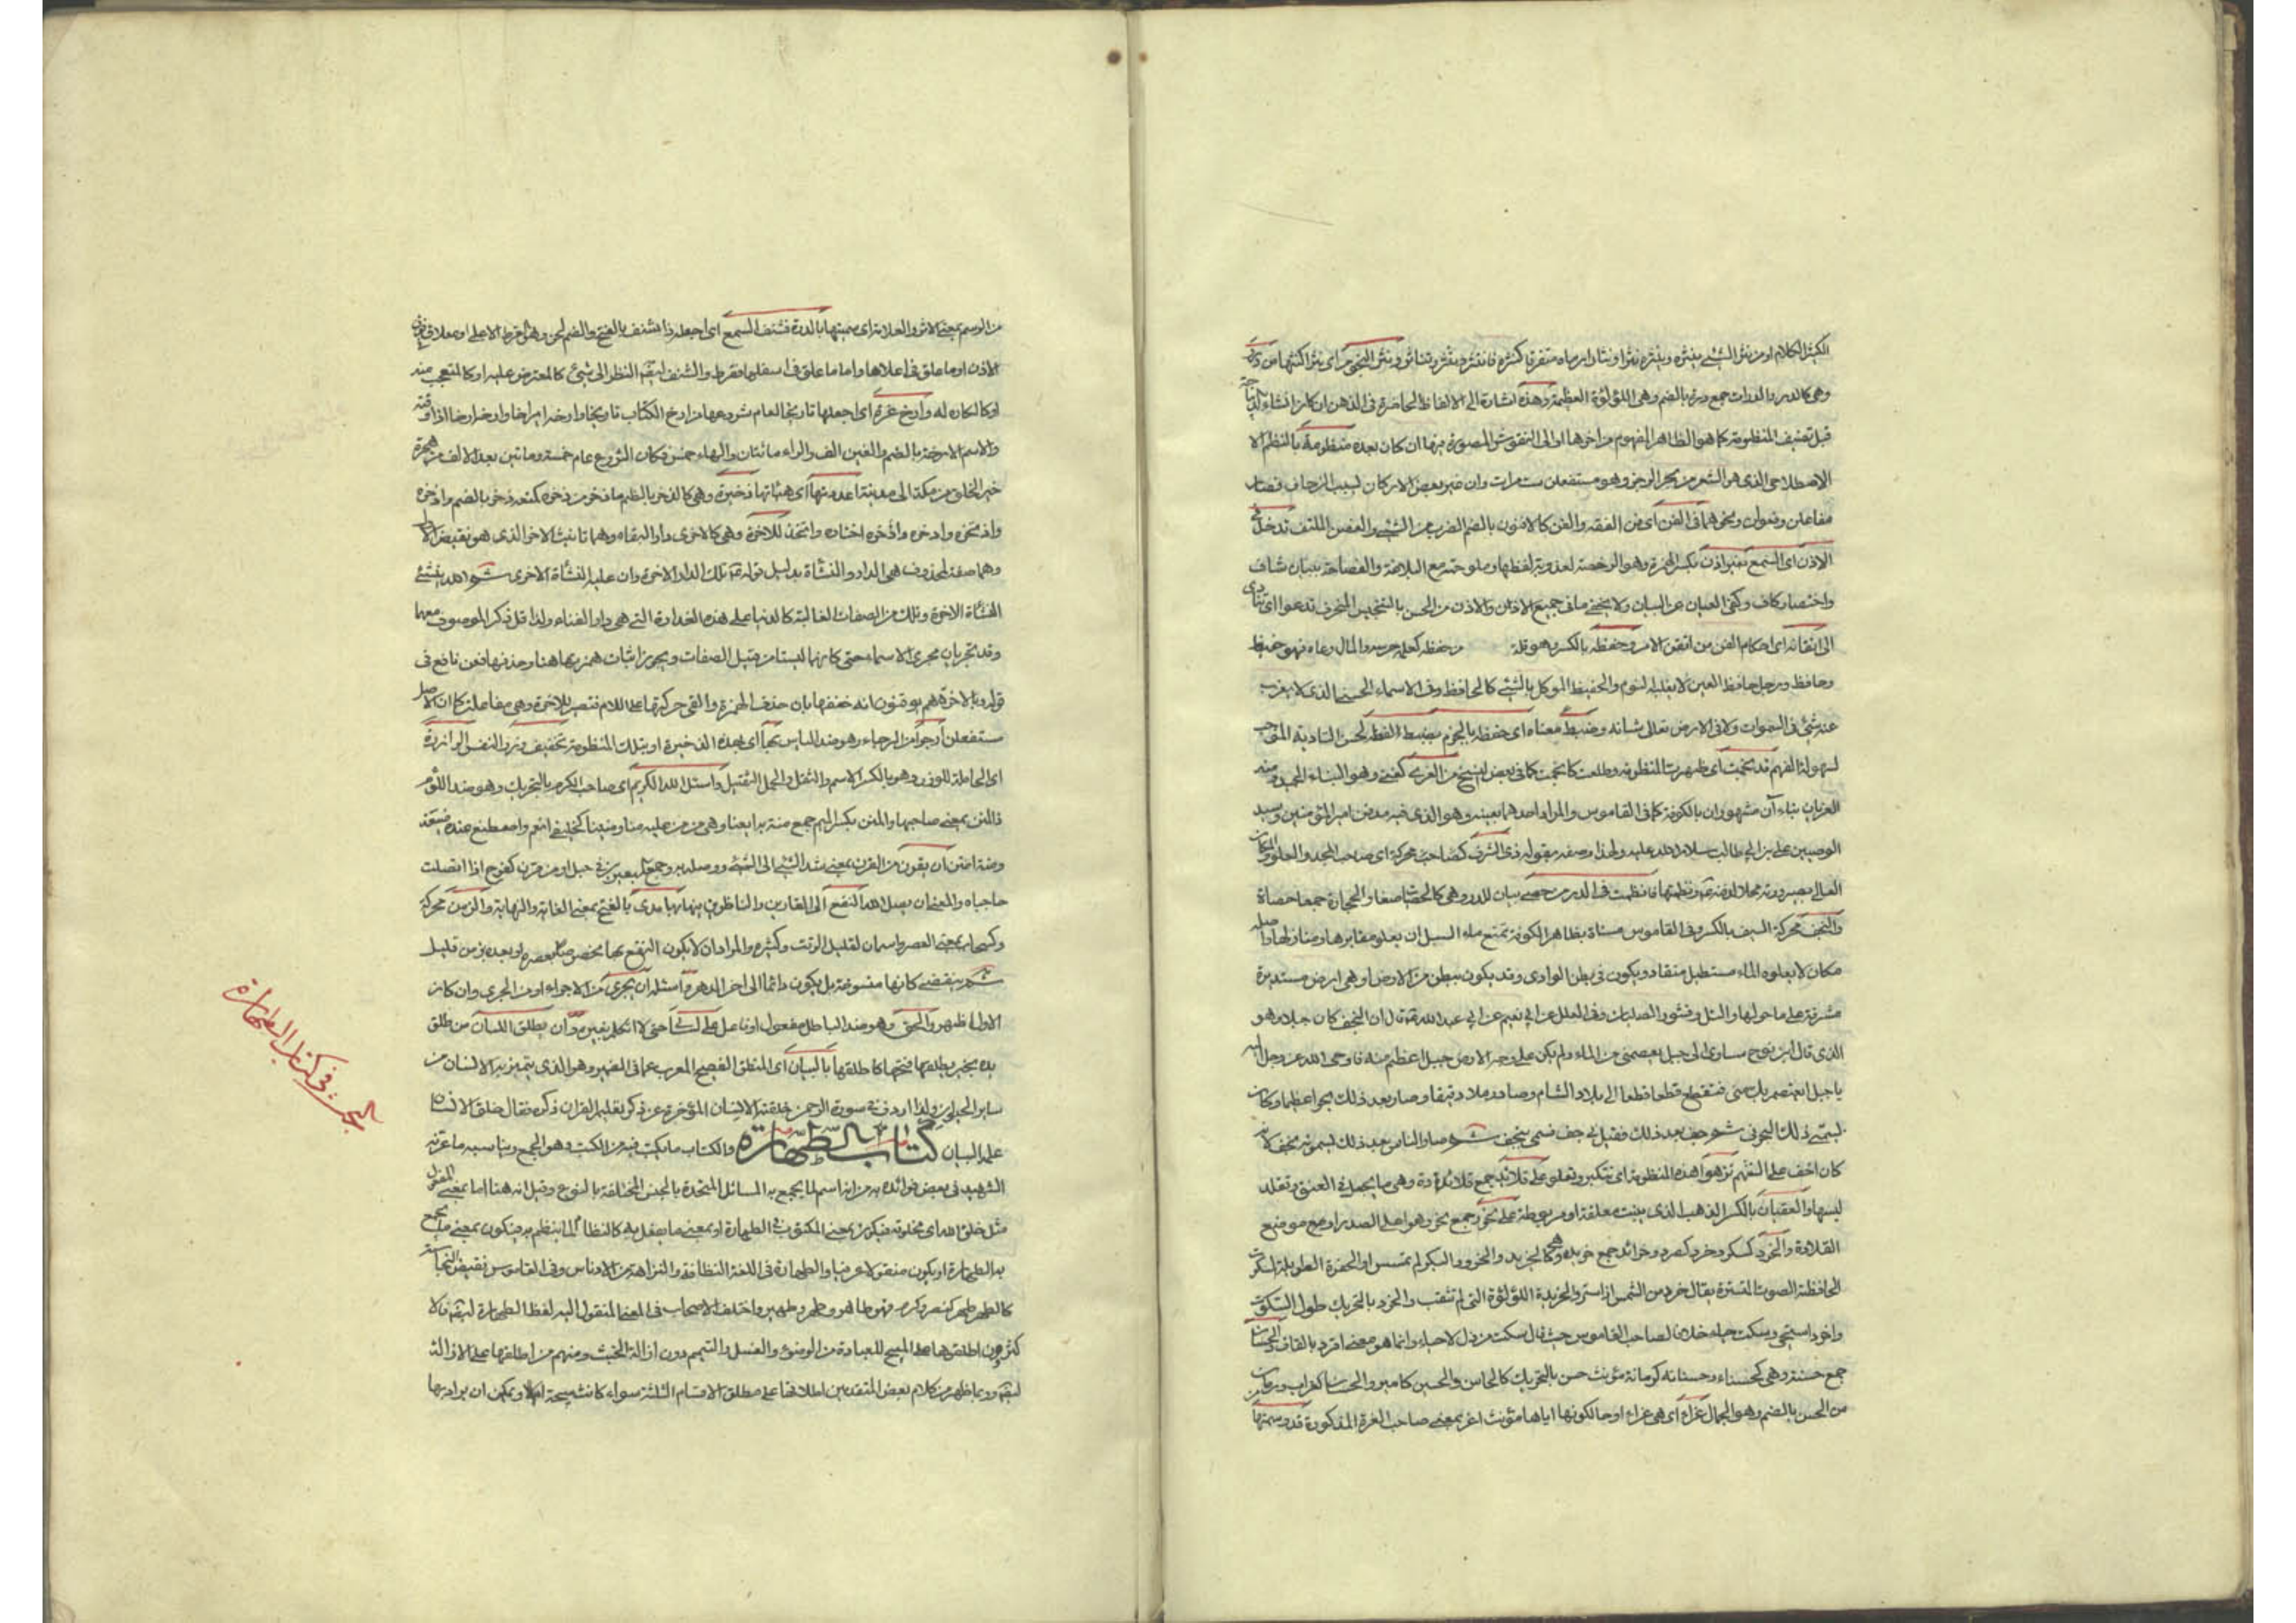 الكثير الكلام او من نثر الشيء ينثره وينثره نثرا ونثارا رماه متفرقا كنثره فانتثر وتنثر وتناثر ونثر النجوم اى نثرا كنثرها من
وهى كالدرر والدرات جمع درة بالضم وهى اللؤلؤة العظيمة وهذه اشارة الى الالفاظ الحاضرة فى الذهن ان كان انشاء
قبل تصنيف المنظومة كما هو الظاهر المفهوم من اخرها او الى النقوش المصورة منها ان كان بعده منظومة بالنظم الا
الاصطلاحى الذى هو الشعر من بحر الرجز وهو مستفعلن ست مرات وان غير بعض الاركان لسبب الزحاف فصار
مفاعلن وفعولن ونحوهما فى الفن اى فن الفقه والفن كالافنون بالضم الضرب من الشيء والغصن الملتف تدخل فى
الاذن اى السمع بغير اذن بكسر الهمزة وهو الرخصة لعذوبة لفظها وملوحته مع البلاغة والفصاحة ببيان شاف
واختصار كاف وكفى العيان عن البيان ولا يخفى ما فى جميع الاذن والاذن من الحسن بالتجنيس المحرف تدعوا اى
الى اتقانه اى احكام الفن من اتقن الامر وحفظه بالكسر وهو قلة من حفظه كعلمه حرسه والمال رعاه فهو حفيظ
وحافظ ورجل حافظ العين لا يغلبه النوم والحفيظ الموكل بالشيء كالحافظ وفى الاسماء الحسنى الذى لا يعزب
عنه شيء فى السموات ولا فى الارض تعالى شانه وضبط معناه اى حفظه بالجزم بضبط اللفظ لحسن التادية
لسهولة الفهم قد نجمت اى ظهرت المنظومة وطلعت كانجمت كما فى بعض النسخ من الغرى كغنى وهو البناء الجيد ومنه
الغريان بناء آن مشهوران بالكوفة كما فى القاموس والمراد احدهما بعينه وهو الذى فيه مدفن امير المؤمنين وسيد
الوصيين على بن ابى طالب سلام الله عليه ولهذا وصفه بقوله ذى الشرف كصاحب محركة اى صاحب المجد والعلو
العالى بصيرورته محلا لدفنه فنظمتها فانظمت فى الدرر من حصى بيان للدرر وهى كالحصباء صغار الحجارة جمعها حصاة
والنجف محركة السيف بالكسر وفى القاموس مسناة بظاهر الكوفة تمنع ماء السيل ان يعلو مقابرها ومنازلها
مكان لا يعلوه الماء مستطيل منقاد ويكون فى بطن الوادى وقد يكون ببطن من الارض او هى ارض مستديرة
مشرفة على ما حولها والتل وقشور الصليان وفى العلل عن ابى نعيم عن ابى عبد الله قال ان النجف كان جبلا وهو
الذى قال ابن نوح ساوى الى جبل يعصمنى من الماء ولم يكن على وجه الارض جبل اعظم منه فاوحى الله عز وجل اليه
يا جبل ايعتصم بك منى فتقطع قطعا قطعا الى بلاد الشام وصار رملا دقيقا وصار بعد ذلك بحرا عظيما وكان
يسمى ذلك البحر نى ثم جف بعد ذلك فقيل نى جف فسمى بنجف ثم صار الناس بعد ذلك يسمونه نجف لانه
كان اخف على السنتهم تزهوا هذه المنظومة اى تتكبر وتعلو على قلائد جمع قلادة وهى ما يجعل فى العنق وتقلد
لبسها والعقيان بالكسر الذهب الذى ينبت معلقة او مربوطة على نحور جمع نحر وهو اعلى الصدر او موضع
القلادة والخرد كسكر وخرد كصرد وخرائد جمع خريدة وهى كالخريد والخرود البكر لم تمسس او الخفرة الطويلة السكوت
الخافظة الصوت المتسترة يقال خرد من الشمس اذا استتر والخريدة اللؤلؤة التى لم تثقب والخرد بالتحريك طول السكوت
واخرد استحى وسكت حياء خلاف لصاحب القاموس حيث قال سكت من ذل لاحياء وانما هو معنى اقرد بالقاف والحسان
جمع حسنة وهى كحسناء وحسانة كرمانة مؤنث حسن بالتحريك كالحاسن والحسين كامير والحسان كغراب ورمان
من الحسن بالضم وهو الجمال غراء اى هى غراء او حالكونها اياها مؤنث اغر بمعنى صاحب الغرة المذكورة قد وسمتها
من الوسم بمعنى الاثر والعلامة اى سميتها بالدرة فشنف السمع اى اجعله ذا شنف بالفتح والضم لحن وهو القرط الاعلى او معلاق فى
الاذن او ما علق فى اعلاها واما ما علق فى اسفلها فقرط والشنف ايضا النظر الى شيء كالمعترض عليه او كالمتعجب منه
او كالكاره له وارخ غرة اى اجعلها تاريخا لعام شروعها من ارخ الكتاب تاريخا وارخه
والاسم الارخة بالضم والغين الف والراء مائتان والهاء خمس فكان الشروع عام خمسة وماتين بعد الالف من هجرة
خير الخلق من مكة الى مدينة اعددتها اى هيأتها ذخيرة وهى كالذخر بالضم ما ذخر من ذخره كمنعه ذخرا بالضم واذخره
واذخره اختاره واتخذه للاخرة وهى كالاخرى دار البقاء وهما تانيث الاخر الذى هو نقيض الاول
وهما صفة لمحذوف هى الدار والنشأة بدليل قوله تلك الدار الاخرة وان عليه النشأة الاخرى ثم الله ينشئ
النشأة الاخرة وتلك من الصفات الغالبة كالدنيا على هذه الغدارة التى هى دار الفناء ولذا قل ذكر الموصوف معهما
وقد تجريان مجرى الاسماء حتى كانهما ليستا من قبيل الصفات ويجوز اثبات همزتهما هنا وحذفها فعن نافع فى
قوله وبالاخرة هم يوقنون انه خففها بان حذف الهمزة والقى حركتها على اللام فتصير للاخرة وهى مفاعلن كما ان الاصل
مستفعلن أرجو من الرجاء وهو ضد الياس بها اى بهذه الذخيرة او بتلك المنظومة تخفيف وزر النفس الوازرة
اى الحاملة للوزر وهو بالكسر الاثم والثقل والحمل الثقيل واسئل الله الكريم اى صاحب الكرم بالتحريك وهو ضد اللؤم
ذا المنن بمعنى صاحبها والمنن بكسر الميم جمع منة
ومنة امتن ان يقرن من القرن بمعنى شد الشيء الى الشيء ووصله به وجمع البعيرين فى حبل او من قرن كفرح اذا اتصلت
حاجباه والمعنى ان يصل الله النفع الى القارين والناظرين بها مدى بالفتح بمعنى الغاية والنهاية والزمن محركة
وكسحاب بمعنى العصر واسمان لقليل الوقت وكثيره والمراد ان لا يكون النفع بها مخصوصا بعصره او بعده بزمن قليل
ثم ينقضى كانها منسوخة بل يكون دائما الى اخر الدهر واسئله ان يجرى من الاجراء او من الجرى وان كان
الاول اظهر والحق وهو ضد الباطل مفعول او فاعل على لسانى حتى لا اتكلم بغيره وان يطلق اللسان من طلق
يده بخير يطلقها فتحها كاطلقها بالبيان اى المنطق الفصيح المعرب عما فى الضمير وهو الذى يتميز به الانسان من
ساير الحيوان ولذا اردف فى سورة الرحمن خلقة الانسان المؤخرة عن ذكر تعليم القرآن ذكره فقال خلق الانسان
علمه البيان كتاب الطهارة والكتاب ما يكتب فيه من الكتب وهو الجمع ويناسبه ما عرفه
الشهيد فى بعض فوائده به من انه اسم لما يجمع به المسائل المتحدة بالجنس المختلفة بالنوع وقيل انه هنا اما بمعنى المفعول
مثل خلق الله اى مخلوقه فيكون بمعنى المكتوب فى الطهارة او بمعنى ما يفعل به كالنظام لما ينظم به فيكون بمعنى ما يجمع
به الطهارة او يكون منقولا عرفيا والطهارة فى اللغة النظافة والنزاهة من الادناس وفى القاموس نقيض النجاسة
كالطهر طهر كنصر وكرم فهو طاهر وطهر وطهير واختلف الاصحاب فى المعنى المنقول اليه لفظ الطهارة ايضا فالا
كثرون اطلقوها على المبيح للعبادة من الوضوء والغسل والتيمم دون ازالة الخبث ومنهم من اطلقها على الازالة
ايضا وربما ظهر من كلام بعض المتقدمين اطلاقها على مطلق الاقسام الثلثة سواء كانت مبيحة او لا ويمكن ان يراد بها
البحث فى كتاب الطهارة